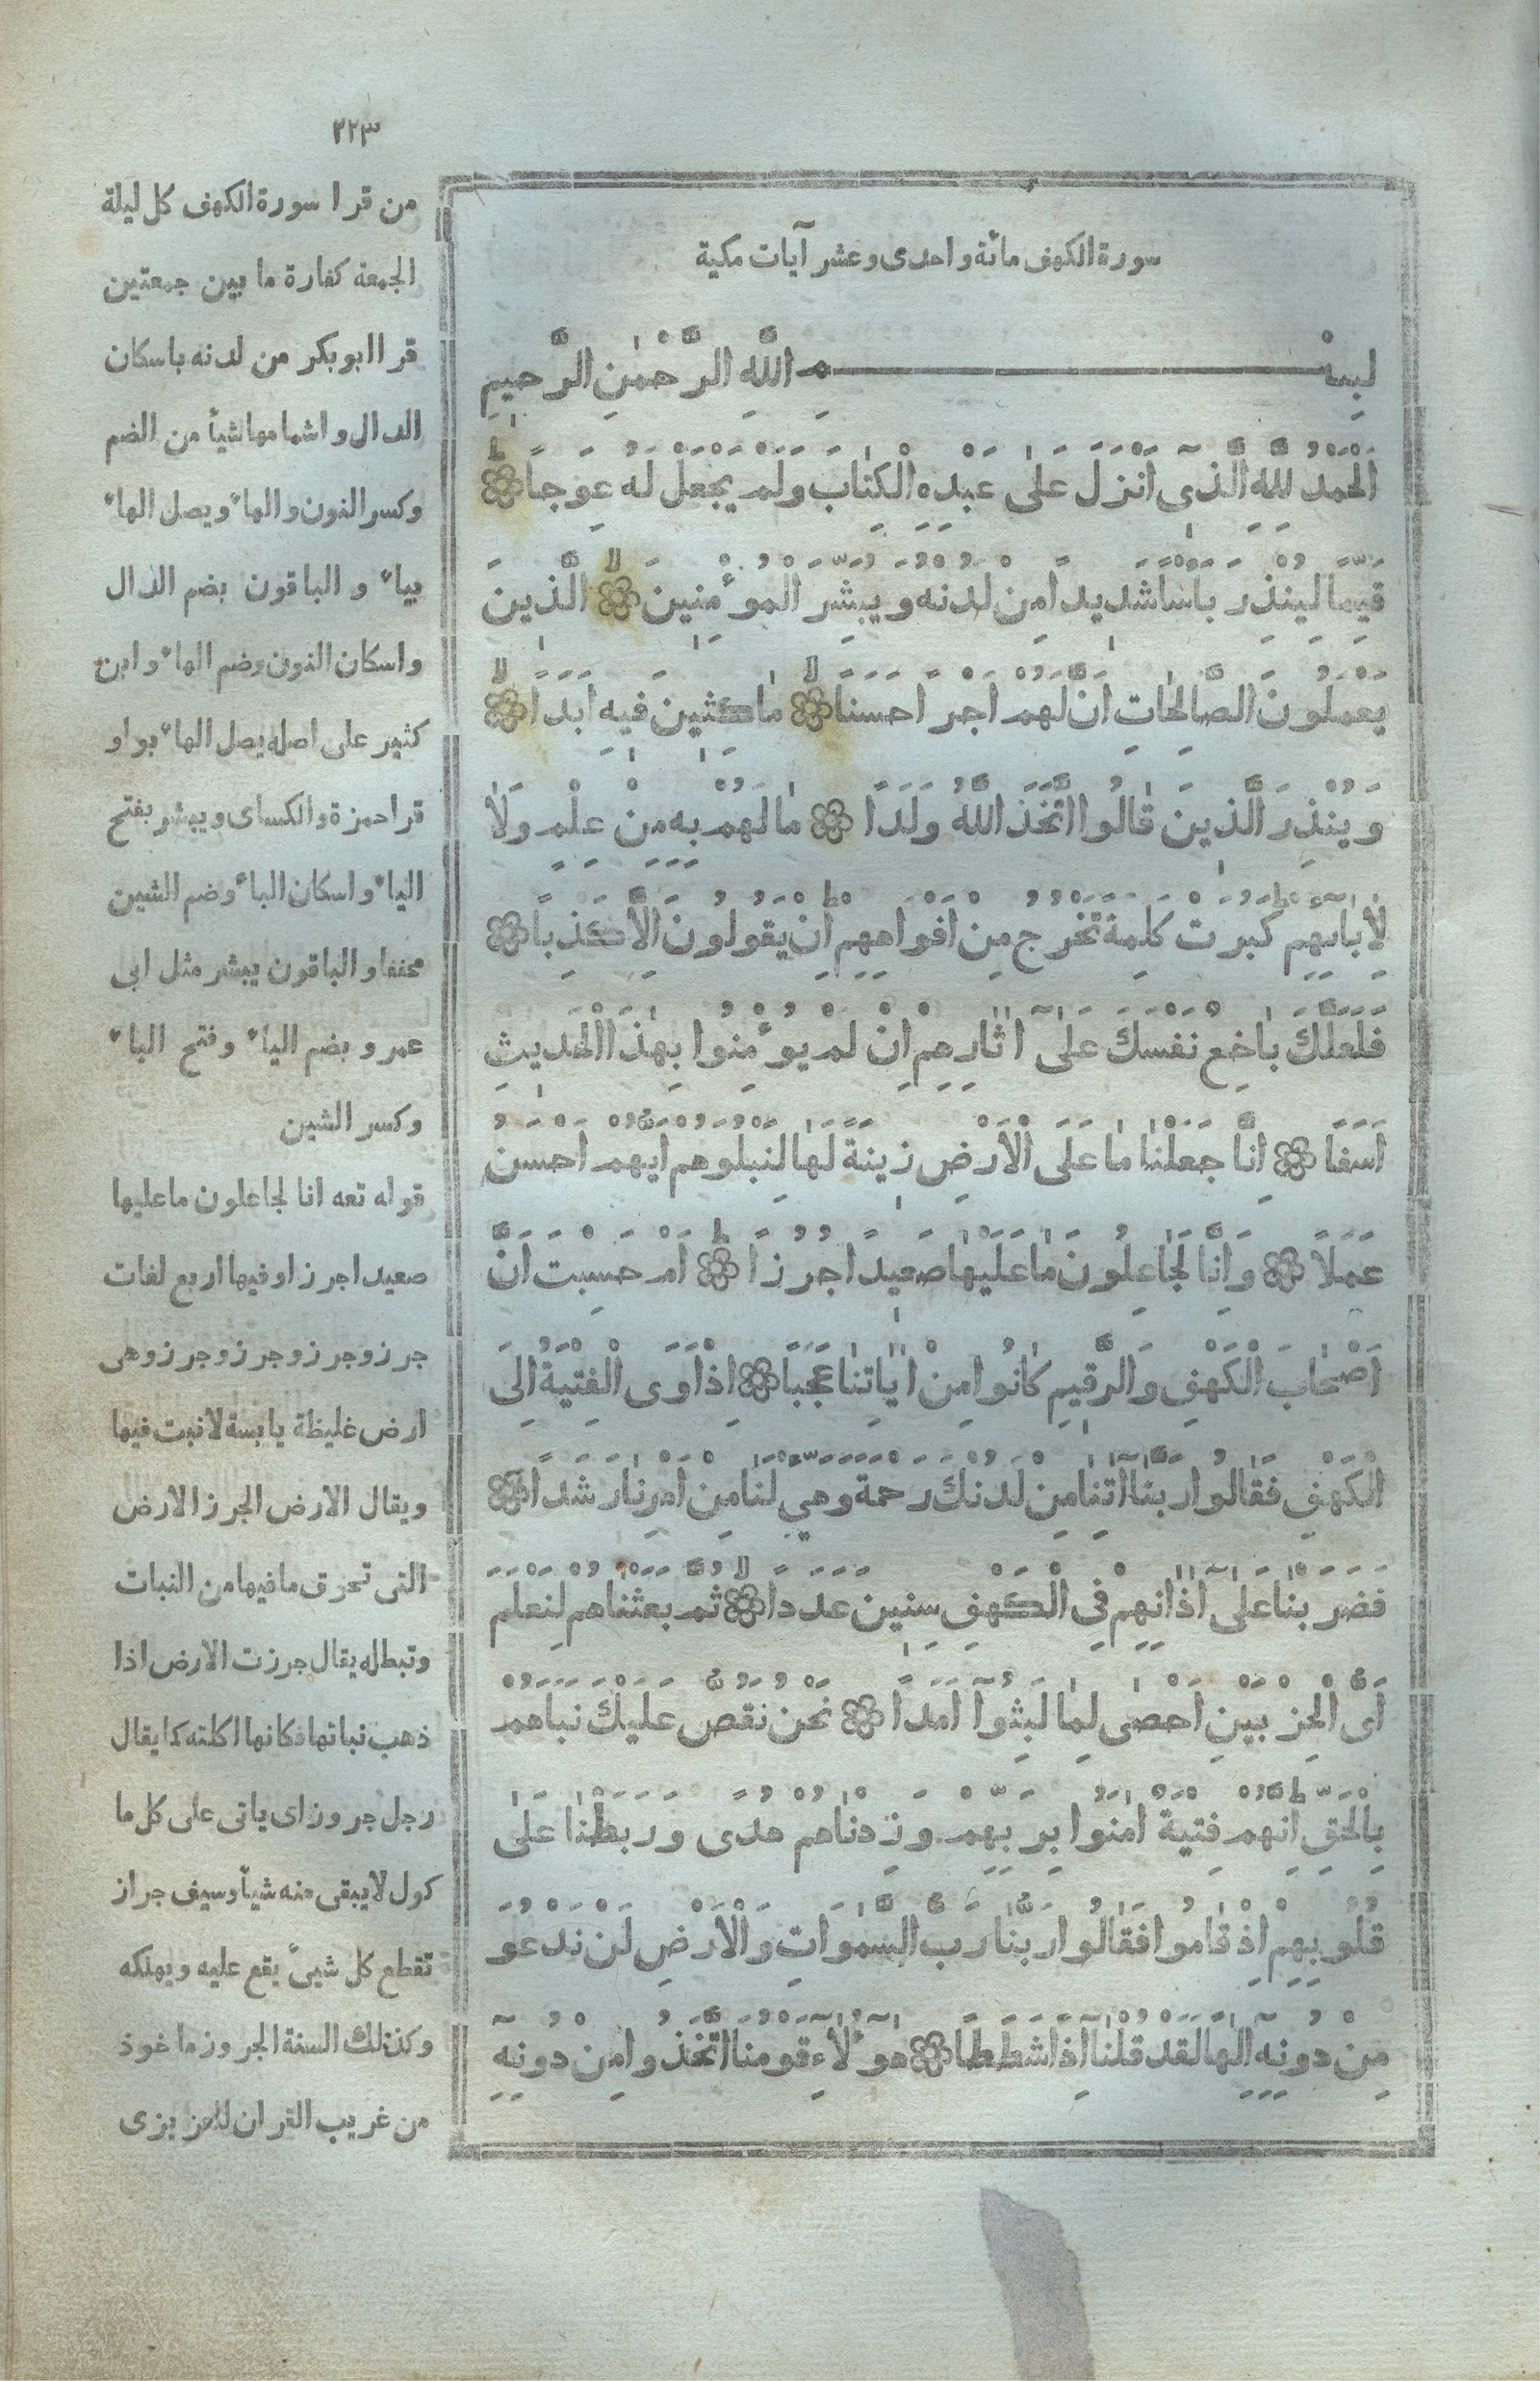 ٣٢٣
سورة الكهف مائة واحدى وعشر آيات مكية
بِسْمِ اللَّهِ الرَّحْمٰنِ الرَّحِيمِ
اَلْحَمْدُ لِلَّهِ الَّذِىٓ اَنْزَلَ عَلٰى عَبْدِهِ الْكِتٰابَ وَلَمْ يَجْعَلْ لَهُ عِوَجًا ۞
قَيِّمًا لِيُنْذِرَ بَاْسًا شَدِيدًا مِنْ لَدُنْهُ وَيُبَشِّرَ الْمُؤْمِنِينَ ۞ الَّذِينَ
يَعْمَلُونَ الصَّالِحٰاتِ اَنَّ لَهُمْ اَجْرًا حَسَنًا ۞ مٰاكِثِينَ فِيهِ اَبَدًا ۞
وَيُنْذِرَ الَّذِينَ قٰالُوا اتَّخَذَ اللَّهُ وَلَدًا ۞ مٰا لَهُمْ بِهِ مِنْ عِلْمٍ وَلَا
لِاٰبٰآئِهِمْ كَبُرَتْ كَلِمَةً تَخْرُجُ مِنْ اَفْوٰاهِهِمْ اِنْ يَقُولُونَ اِلَّا كَذِبًا ۞
فَلَعَلَّكَ بٰاخِعٌ نَفْسَكَ عَلٰٓى اٰثٰارِهِمْ اِنْ لَمْ يُؤْمِنُوا بِهٰذَا الْحَدِيثِ
اَسَفًا ۞ اِنَّا جَعَلْنٰا مٰا عَلَى الْاَرْضِ زِينَةً لَهٰا لِنَبْلُوَهُمْ اَيُّهُمْ اَحْسَنُ
عَمَلًا ۞ وَاِنَّا لَجٰاعِلُونَ مٰا عَلَيْهٰا صَعِيدًا جُرُزًا ۞ اَمْ حَسِبْتَ اَنَّ
اَصْحٰابَ الْكَهْفِ وَالرَّقِيمِ كٰانُوا مِنْ اٰيٰاتِنٰا عَجَبًا ۞ اِذْ اَوَى الْفِتْيَةُ اِلَى
الْكَهْفِ فَقٰالُوا رَبَّنٰٓا اٰتِنٰا مِنْ لَدُنْكَ رَحْمَةً وَهَيِّئْ لَنٰا مِنْ اَمْرِنٰا رَشَدًا ۞
فَضَرَبْنٰا عَلٰٓى اٰذٰانِهِمْ فِى الْكَهْفِ سِنِينَ عَدَدًا ۞ ثُمَّ بَعَثْنٰاهُمْ لِنَعْلَمَ
اَىُّ الْحِزْبَيْنِ اَحْصٰى لِمٰا لَبِثُوٓا اَمَدًا ۞ نَحْنُ نَقُصُّ عَلَيْكَ نَبَاَهُمْ
بِالْحَقِّ اِنَّهُمْ فِتْيَةٌ اٰمَنُوا بِرَبِّهِمْ وَزِدْنٰاهُمْ هُدًى وَرَبَطْنٰا عَلٰى
قُلُوبِهِمْ اِذْ قٰامُوا فَقٰالُوا رَبُّنٰا رَبُّ السَّمٰوٰاتِ وَالْاَرْضِ لَنْ نَدْعُوَ
مِنْ دُونِهِٓ اِلٰهًا لَقَدْ قُلْنٰٓا اِذًا شَطَطًا ۞ هٰٓؤُلٰٓاءِ قَوْمُنَا اتَّخَذُوا مِنْ دُونِهِٓ
من قرا سورة الكهف كل ليلة
الجمعة كفارة ما بين جمعتين
قرا ابو بكر من لدنه باسكان
الدال واشمامها شيأ من الضم
وكسر النون والهاء ويصل الهاء
بياء والباقون بضم الدال
واسكان النون وضم الهاء وابن
كثير على اصله يصل الهاء بواو
قرا حمزة والكساى ويبشر بفتح
الياء واسكان الباء وضم الشين
مخففا والباقون يبشر مثل ابى
عمرو بضم الياء وفتح الباء
وكسر الشين
قوله تعه انا لجاعلون ما عليها
صعيدا جرزا وفيها اربع لغات
جرز وجرز وجرز وجرز وهى
ارض غليظة يابسة لا نبت فيها
ويقال الارض الجرز الارض
التى تحرق ما فيها من النبات
وتبطله يقال جرزت الارض اذا
ذهب نباتها فكانها اكلته كما يقال
رجل جروز اى ياتى على كل ما
كول لا يبقى منه شيأ وسيف جراز
تقطع كل شيئ يقع عليه ويهلكه
وكذلك السنة الجروز ماخوذ
من غريب القران للعزيزى